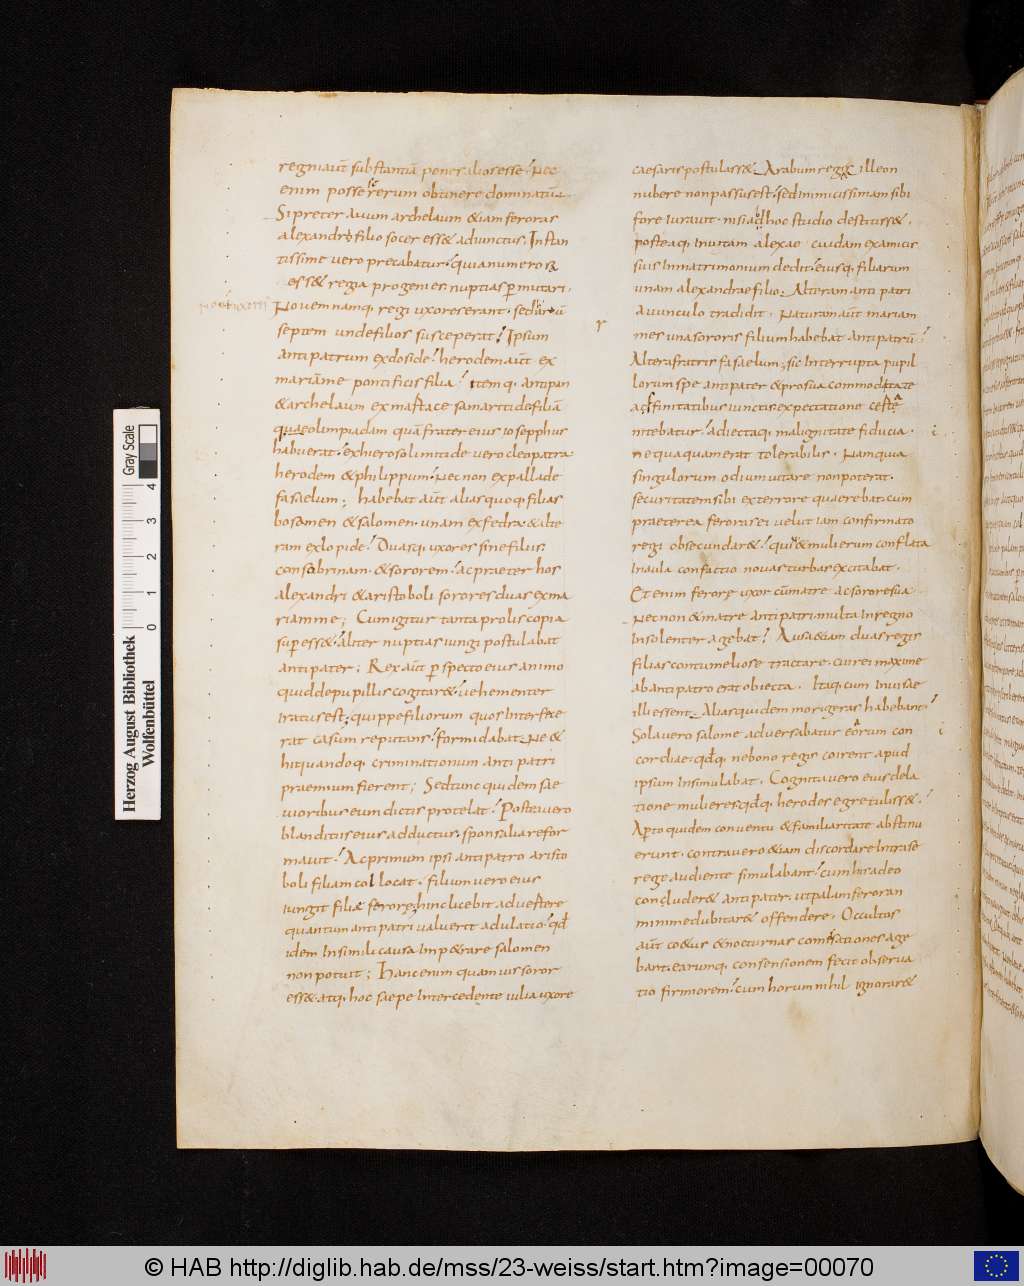 regni aut̄ substantiā penes illos esse. Nec
enim posse se rerum obtinere dominatū.
Si preter auum archelaum &iam feroras
alexandri filio socer ess& adiunctus. Instan
tissime vero precabatur. quia numerosa
ess& regia progenies nuptias p̄mutari.
Novem namq. regi uxores erant. sed
septem unde filios susceperat. Ipsum
antipatrum ex doside. herodem aut̄ ex
mariāme pontificis filia. Itemq. antipan
&archelaum ex mastace samaritide filiā
quae olimpiadam quā frater eius iosepphus
habuerat. ex hierosolimitide vero cleopatra
herodem &philippum. Nec non ex pallade
fasaelum; habebat aut̄ alias quoq. filias
bosamen &salomen. unam ex fedra. &alte
ram ex lopide. Duasq. uxores sine filiis.
consobrinam. &sororem. ac praeter hos
alexandri &aristoboli sorores duas ex ma
riamme; Cum igitur tanta prolis copia
sup ess&. aliter nuptias iungi postulabat
antipater; Rex aut̄ pspecto eius animo
quid de pupillis cogitar&. vehementer
iratus est; quippe filiorum quos interfece
rat casum reputans. formidabat. Ne &
hi quandoq. criminationum antipatri
praemium fierent; Sed tunc quidem sae
vioribus eum dictis protelat. Postea vero
blanditiis eius adductus. sponsalia refor
mavit. Ac primum ipsi antipatro aristo
boli filiam collocat. filium vero eius
iungit filiae ferorę; hinc licebit advertere
quantum antipatri valuerit adulatio. qđ
idem in simili causa imp&rare salomen
non potuit; Hanc enim quamvis soror
ess&. atq. hoc saepe intercedente iulia uxore
caesaris postulass&. Arabum regi illeon
nubere non passus est. sed inimicissimam sibi
fore iuravit. nisi ab hoc studio destitiss&.
posteaq. invitam alexae cuidam ex amicis
suis in matrimonium dedit. eiusq. filiarum
unam alexandrae filio. Alteram antipatri
avunculo tradidit. Naturam aut̄ mariam
mes una sororis filium habebat antipatrū.
Altera fratris fasaelum; sic interrupta pupil
lorum spe antipater &pro sua commoditate
affinitatibus iunctis. expectatione
nitebatur. adiectaq. malignitate fiducia.
nequaquam erat tolerabilis. Nam quia
singulorum odium vitare non poterat.
securitatem sibi ex terrore quaerebat. cum
praeterea feroras ei velut iam confirmato
regi obsecundar&. quin &mulierum conflata
in aula confactio novas turbas excitabat.
Et enim ferorę uxor cū matre ac sorore sua.
Nec non &matre antipatri. multa in regno
insolenter agebat. Ausa &iam duas regis
filias contumeliose tractare. cui rei maxime
ab antipatro erat obiecta. Itaq. cum invisae
illi essent. Alias quidem morigeras habebant.
Sola vero salome adversabatur eorum con
cordiae. qđq. ne bono regis coirent apud
ipsum insimulabat. Cognita vero eius dela
tione mulieres. qđq. herodes egre tuliss&.
Apto quidem conventu &familiaritate abstinu
erunt. contra vero &iam discordare inter se
rege audiente simulabant. cum hira deo
concluder& antipater. ut palam feroran
minime dubitar& offendere. Occultos
aut̄ co&us &nocturnas comessationes age
bant. earumq. consensionem fecit observa
tio firmiorem. cum horum nihil ignorar&
Herzog August Bibliothek
Wolfenbüttel
0 1 2 3 4
Gray Scale
© HAB http://diglib.hab.de/mss/23-weiss/start.htm?image=00070